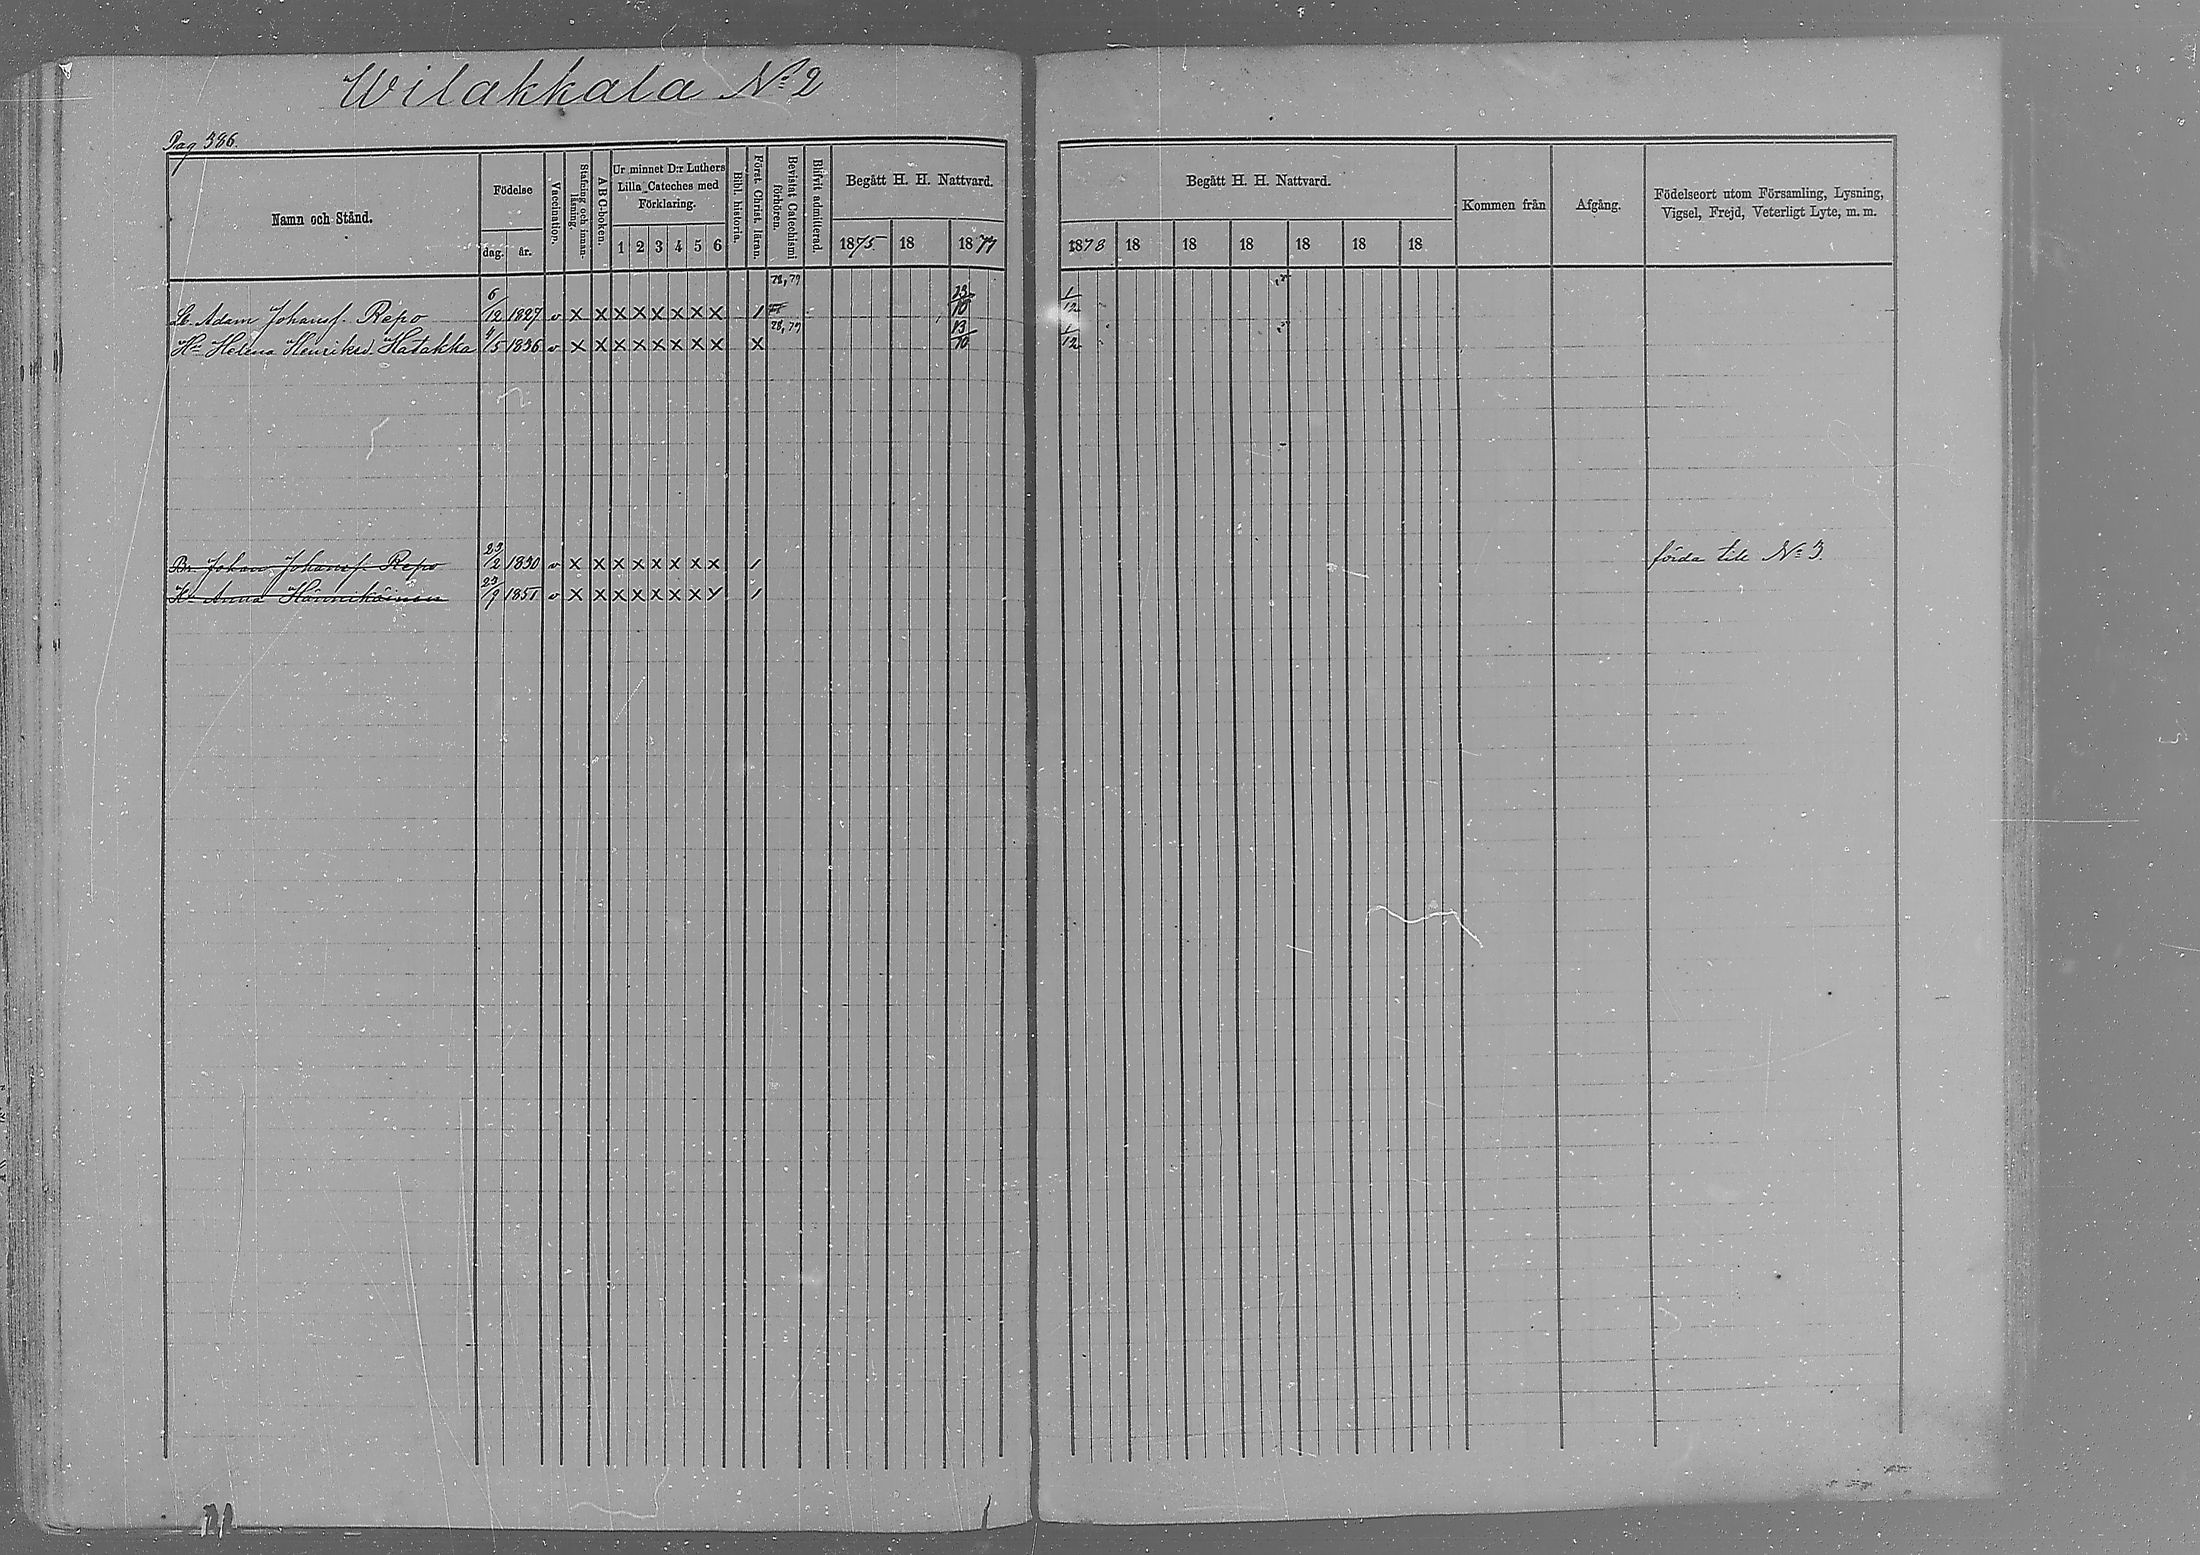 Wilakkala No 2
Pag 386.
Namn och Stånd.
Födelse
dag. år.
Vaccination.
Stafning och innan-läsning.
A B C-boken.
Ur minnet D:r Luthers Lilla Cateches med Förklaring.
1 2 3 4 5 6
Bibl. historia.
Först. Christ. läran.
Bevistat Catechismi förhören.
Blifvit admitterad.
Begått H. H. Nattvard.
1875 18 1877
Begått H. H. Nattvard.
1878 18 18 18 18 18 18
Kommen från
Afgång.
Födelseort utom Församling, Lysning, Vigsel, Frejd, Veterligt Lyte, m. m.
Adam Johansf. Repo 6/12 1827 v x x x x x x x x 1 78, 79 23/10 1/12
Hu Helena Henriksd. Hatakka 4/5 1836 v x x x x x x x x x 78, 79 13/10 1/12
Br. Johan Johansf. Repo 23/2 1830 v x x x x x x x x 1 förda till No 3
Hu Anna Hännikäinen 23/9 1851 v x x x x x x x 1